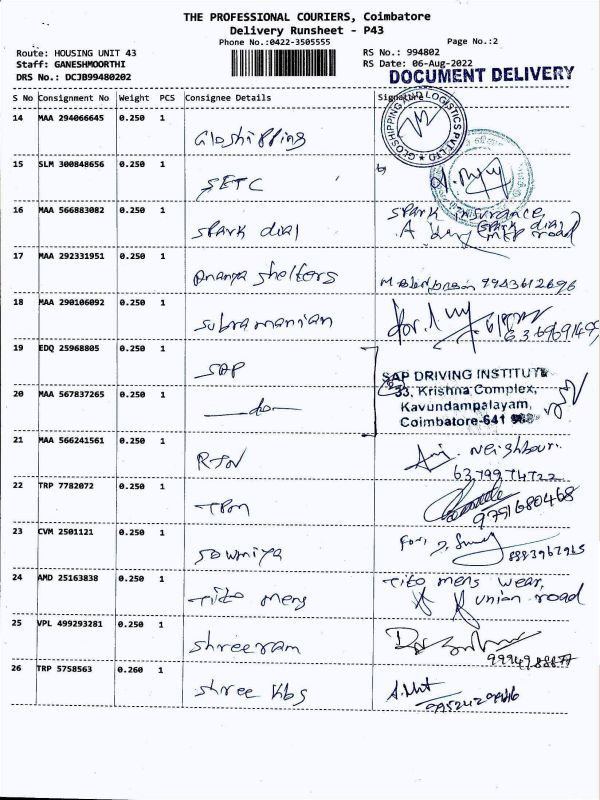 THE PROFESSIONAL COURIERS, Coimbatore
Delivery Runsheet - P43
Phone No.:0422-3505555
Page No.:2
Route: HOUSING UNIT 43
RS No.: 994802
Staff: GANESHMOORTHI
RS Date: 06-Aug-2022
DRS No.: DCJB99480202
DOCUMENT DELIVERY
S No Consignment No Weight PCS Consignee Details Signature
14 MAA 294066645 0.250 1 Gloshipping
15 SLM 300848656 0.250 1 SETC
16 MAA 566883082 0.250 1 Spark dial Spark insurance,
Spark dial
MKP road
17 MAA 292331951 0.250 1 Ananya Shelters 9943612696
18 MAA 290106092 0.250 1 Subramanian
19 EDQ 25968805 0.250 1 SAP
SAP DRIVING INSTITUTE
33, Krishna Complex,
20 MAA 567837265 0.250 1 —do—
Kavundampalayam,
Coimbatore-641
21 MAA 566241561 0.250 1 RTN Neighbour.
6379974722
22 TRP 7782072 0.250 1 TPM
9751680468
23 CVM 2501121 0.250 1 Sowmiya For,
8883967965
24 AMD 25163838 0.250 1 Tito mens Tito mens wear,
union road
25 VPL 499293281 0.250 1 Shreeram
9994988877
26 TRP 5758563 0.260 1 Shree kbs